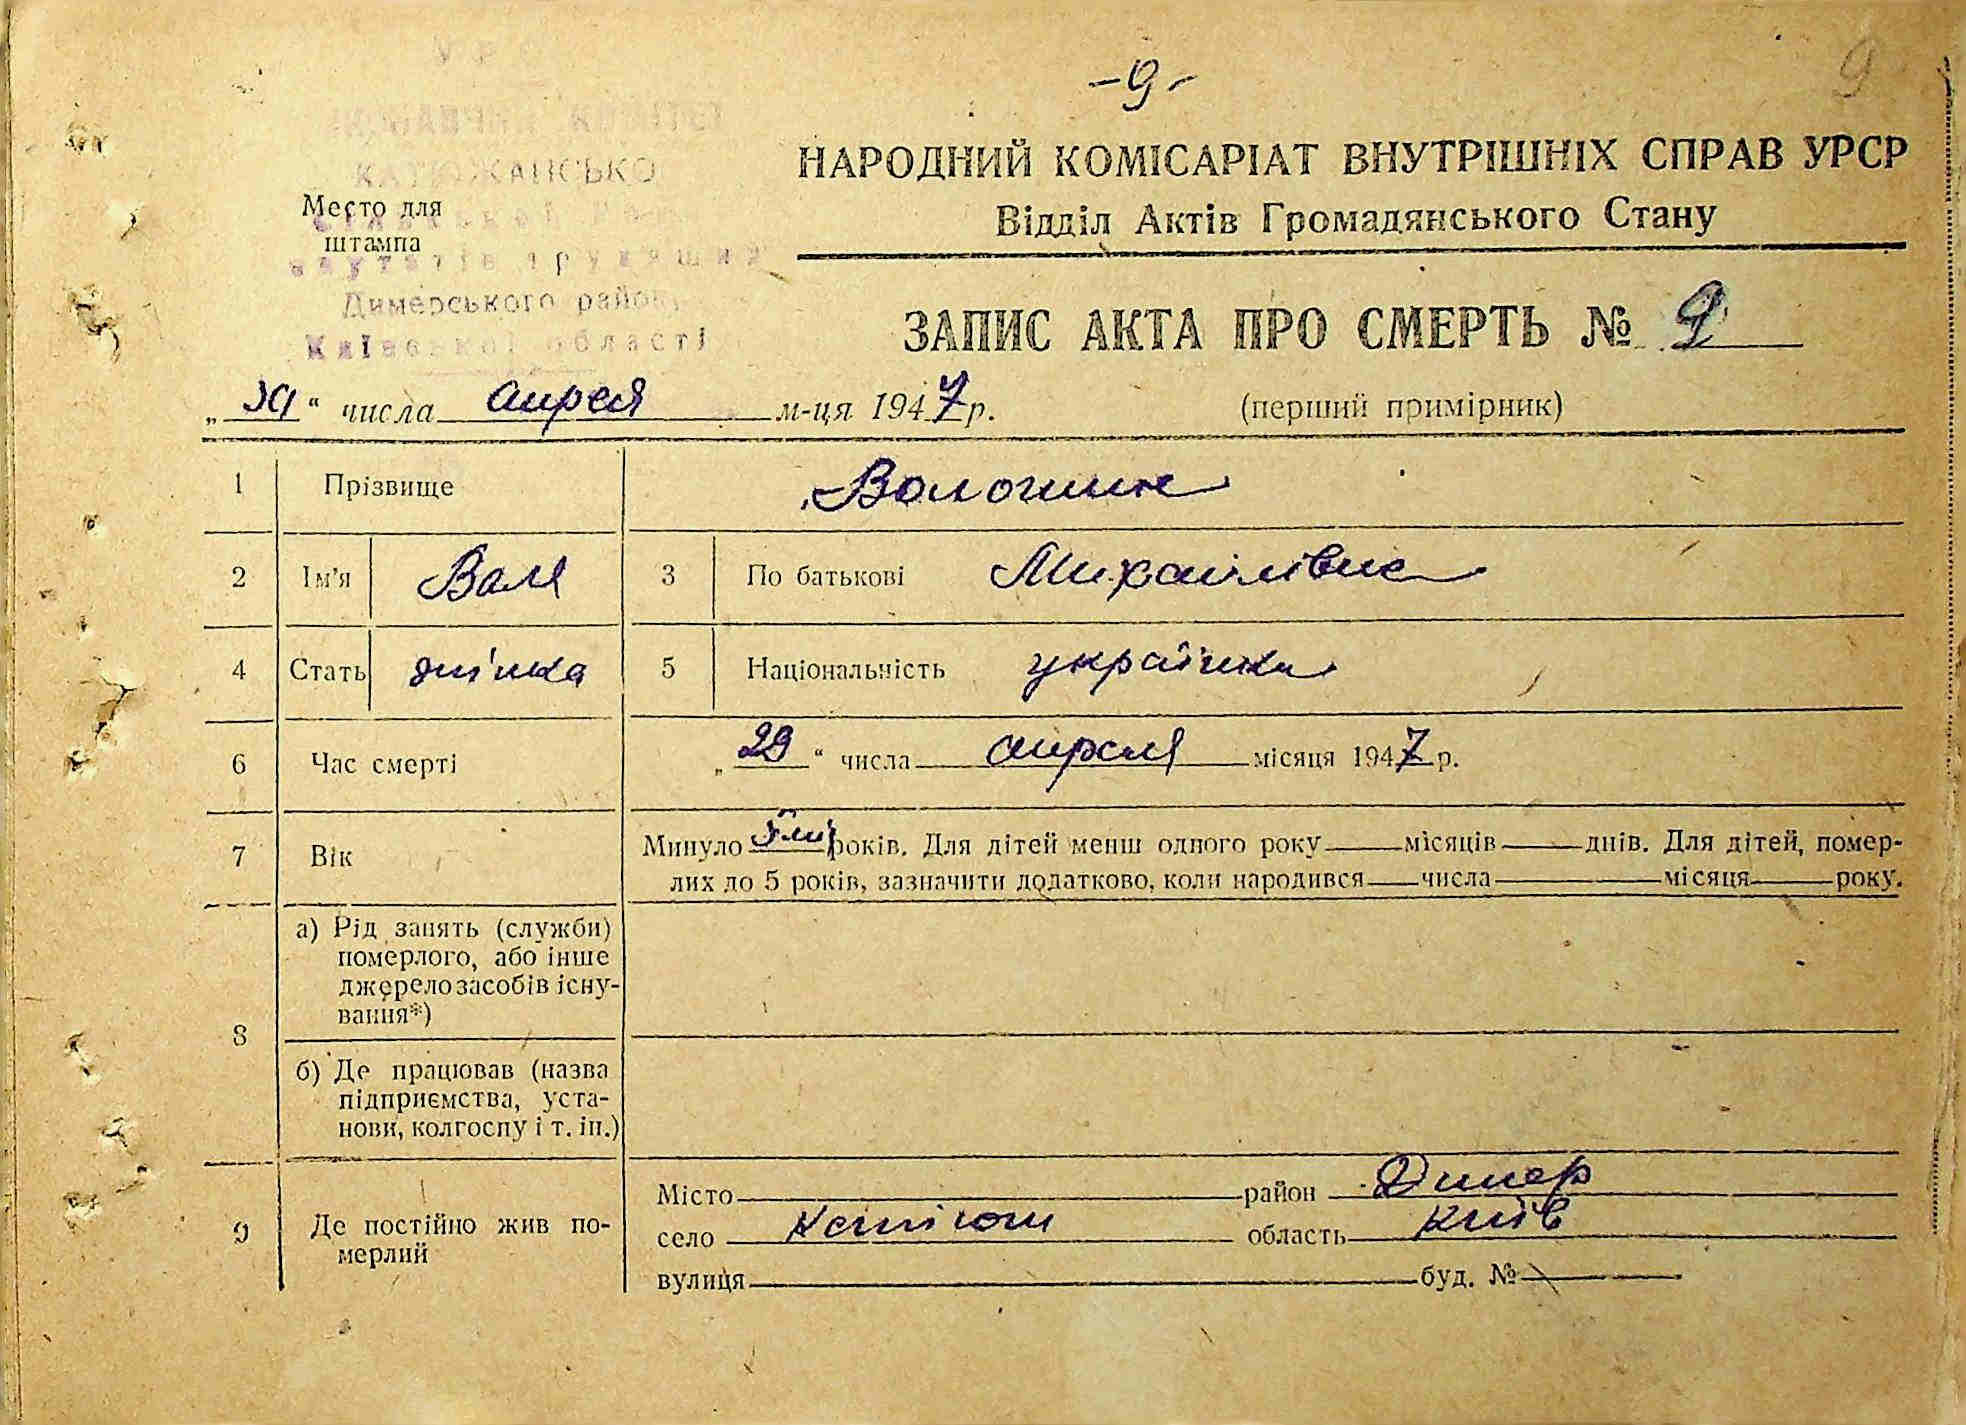 -9-
9
КАТЮЖАНСЬКО
Место для
штампа
Димерського району
Київської області
НАРОДНИЙ КОМІСАРІАТ ВНУТРІШНІХ СПРАВ УРСР
Відділ Актів Громадянського Стану
ЗАПИС АКТА ПРО СМЕРТЬ № 9
" " числа апреля м-ця 1947 р.
(перший примірник)
1 Прізвище
2 Ім'я Валя 3 По батькові Михайлівна
4 Стать жінка 5 Національність українка
6 Час смерті "29" числа апреля місяця 1947 р.
7 Вік Минуло років. Для дітей менш одного року місяців днів. Для дітей, помер-
лих до 5 років, зазначити додатково, коли народився числа місяця року.
8 а) Рід занять (служби)
померлого, або інше
джерело засобів існу-
вання*)
б) Де працював (назва
підприємства, уста-
нови, колгоспу і т. ін.)
9 Де постійно жив по-
мерлий
Місто район Димер
село область Київ
вулиця буд. №